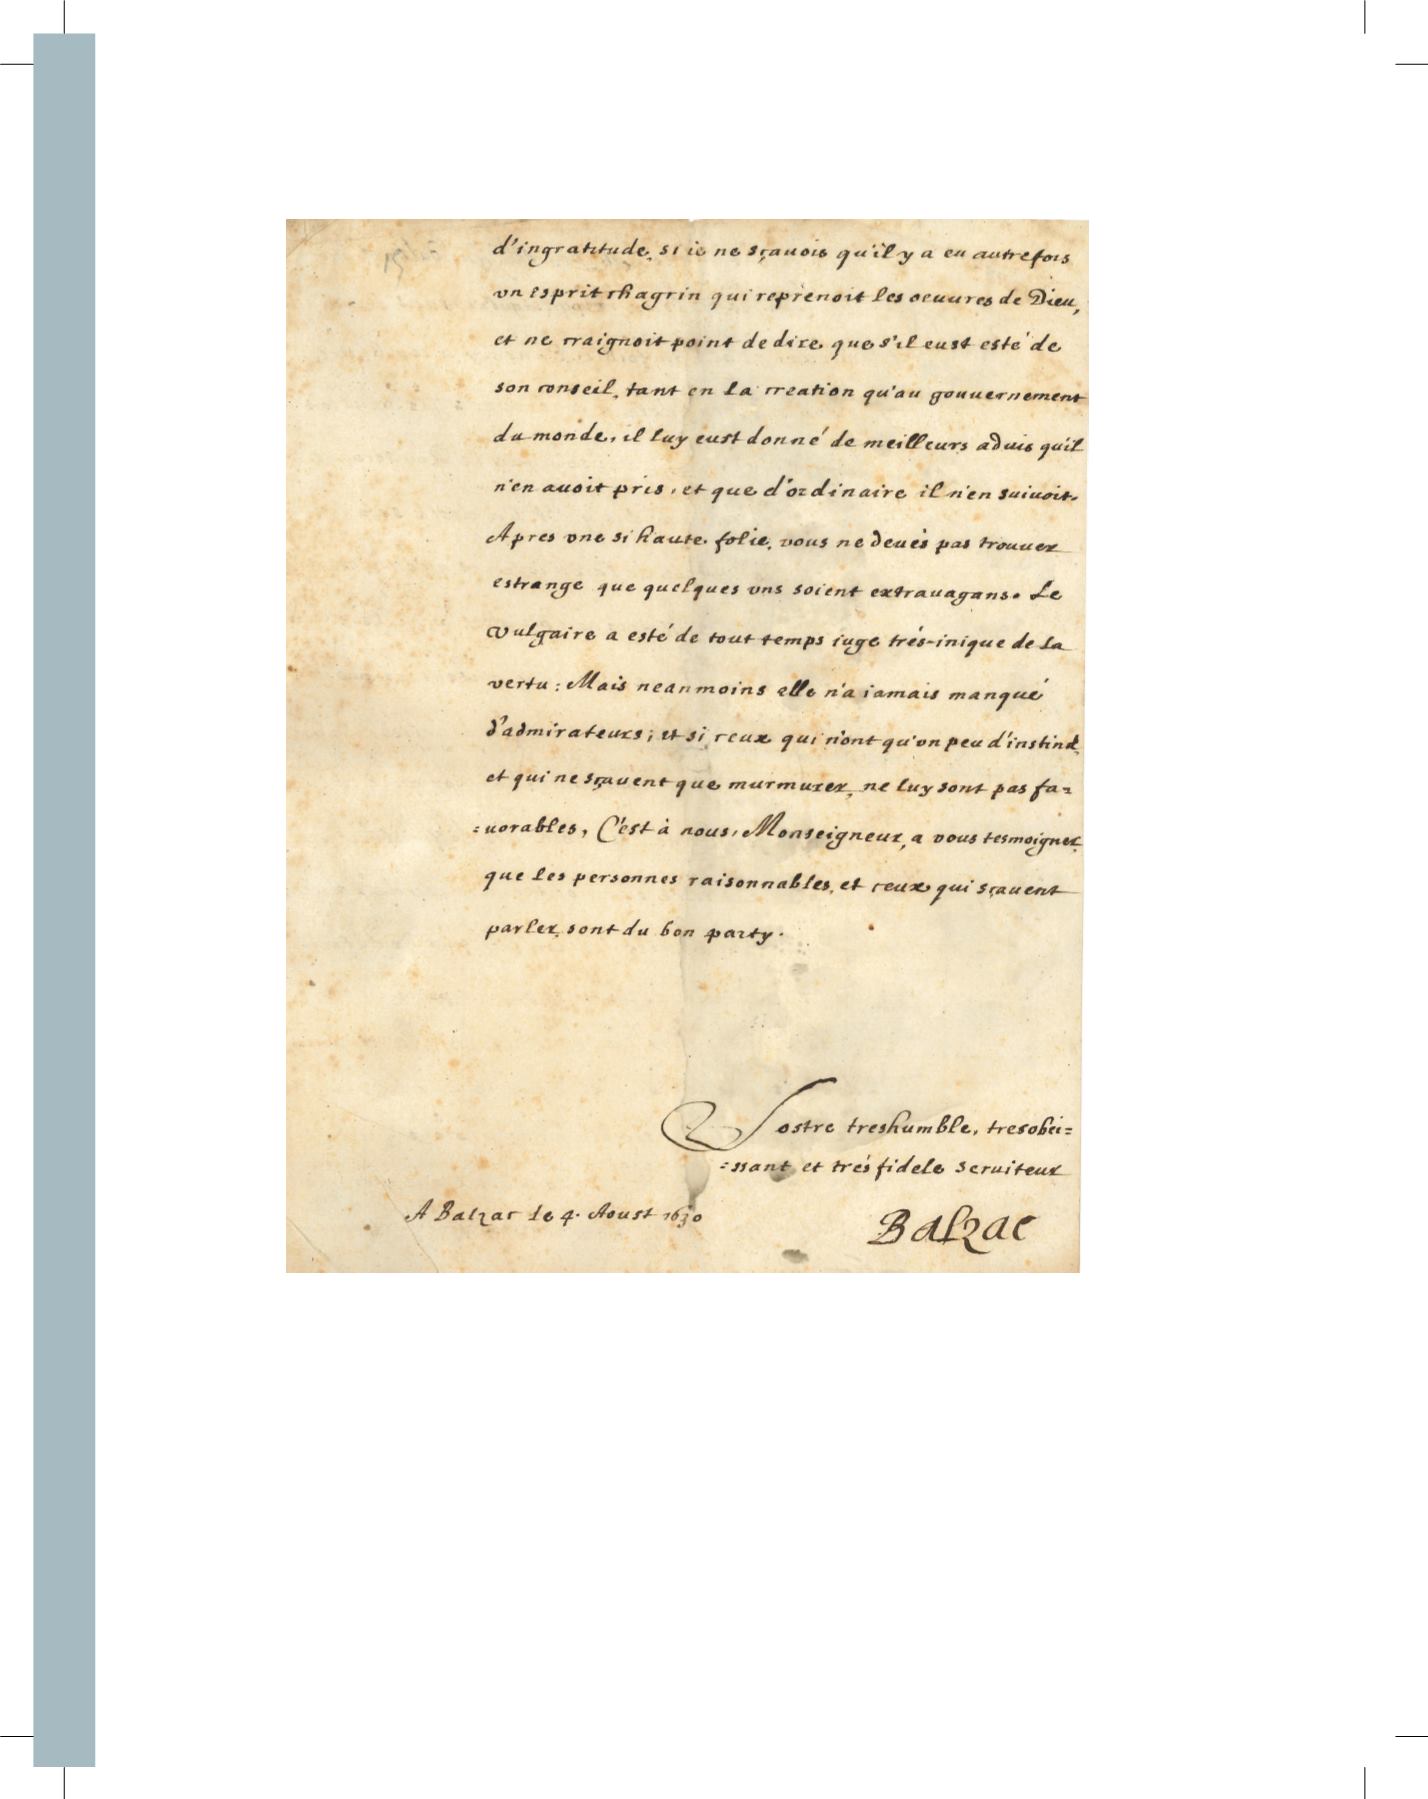 d'ingratitude, si ie ne sçauois qu'il y a eu autrefois
vn esprit chagrin qui reprenoit les oeuures de Dieu,
et ne craignoit point de dire que s'il eust esté de
son conseil, tant en la creation qu'au gouuernement
du monde, il luy eust donné de meilleurs aduis qu'il
n'en auoit pris, et que d'ordinaire il n'en suiuoit.
Apres vne si haute folie, vous ne deués pas trouuer
estrange que quelques vns soient extrauagans. Le
vulgaire a esté de tout temps iuge trés-inique de la
vertu: Mais neanmoins elle n'a iamais manqué
d'admirateurs; et si ceux qui n'ont qu'vn peu d'instinct
et qui ne sçauent que murmurer, ne luy sont pas fa=
=uorables, C'est à nous, Monseigneur, a vous tesmoigner
que les personnes raisonnables, et ceux qui sçauent
parler, sont du bon party.
Vostre treshumble, tresobei=
=ssant et trés fidele seruiteur
A Balzac le 4. Aoust 1630
Balzac